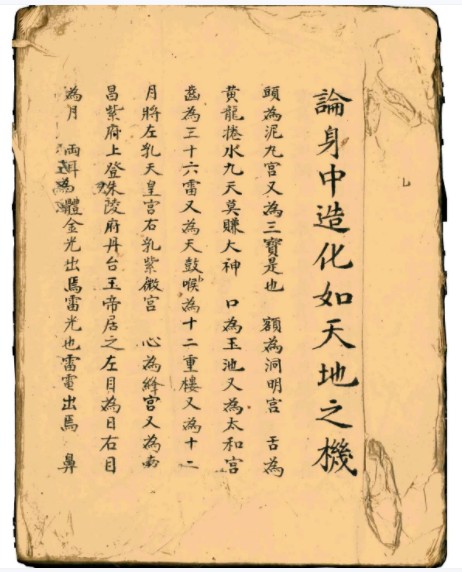 論身中造化如天地之機
頭為泥丸宮又為三寶是也 額為洞明宮 舌為
黃龍捲水九天莫賺大神 口為玉池又為太和宮
齒為三十六雷又為天鼓喉為十二重樓又為十二
月將左乳天皇宮右乳紫微宮 心為絳宮又為南
昌紫府上登殊陵府丹台玉帝居之左目為日右目
為月 兩耳為體金光出焉雷光也雷電出焉 鼻